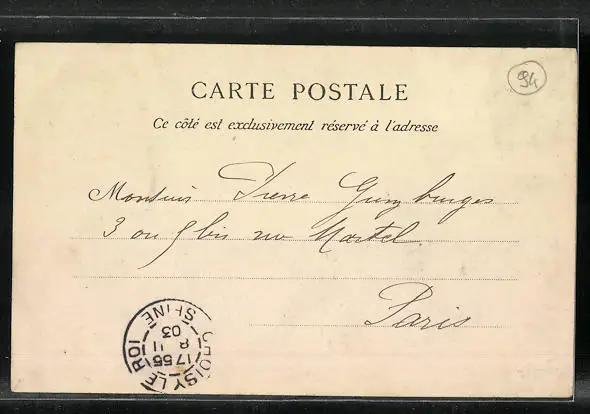 94
CARTE POSTALE
Ce côté est exclusivement réservé à l'adresse
Monsieur Pierre Gunzburger
3 ou 5 bis rue Martel
Paris
CHOISY LE ROI
SEINE
17 55
8 11
03